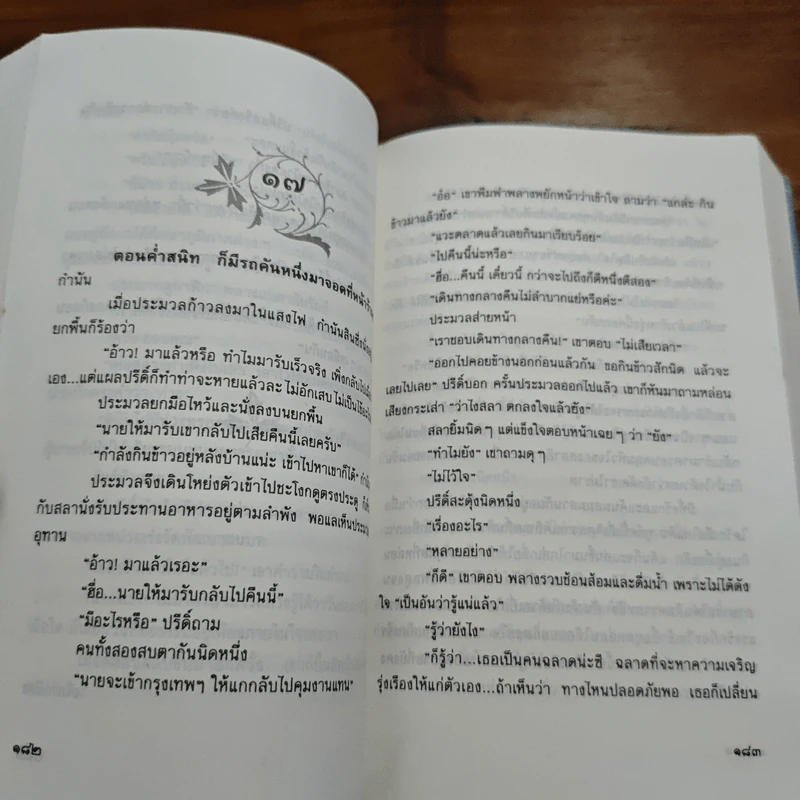 ๑๗
ตอนค่ำสนิท ก็มีรถคันหนึ่งมาจอดที่หน้า
กำนัน
เมื่อประมวลก้าวลงมาในแสงไฟ กำนันสินซึ่งนั่ง
ยกพื้นก็ร้องว่า
“อ้าว! มาแล้วหรือ ทำไมมารับเร็วจริง เพิ่งกลับไป
เอง...แต่แผลปรีดิ์ก็ทำท่าจะหายแล้วละ ไม่อักเสบ ไม่เป็นไร
ประมวลยกมือไหว้และนั่งลงบนยกพื้น
“นายให้มารับเขากลับไปเสียคืนนี้เลยครับ”
“กำลังกินข้าวอยู่หลังบ้านแน่ะ เข้าไปหาเขาก็ได้”
ประมวลจึงเดินโหย่งตัวเข้าไปชะโงกดูตรงประตู
กับสลานั่งรับประทานอาหารอยู่ตามลำพัง พอแลเห็นประมวล
อุทาน
“อ้าว! มาแล้วเรอะ”
“ฮื่อ...นายให้มารับกลับไปคืนนี้”
“มีอะไรหรือ” ปรีดิ์ถาม
คนทั้งสองสบตากันนิดหนึ่ง
“นายจะเข้ากรุงเทพฯ ให้แกกลับไปคุมงานแทน”
๑๘๒
“อ๋อ” เขาพึมพำพลางพยักหน้าว่าเข้าใจ ถามว่า “แกล่ะ กิน
ข้าวมาแล้วยัง”
“แวะตลาดแล้วเลยกินมาเรียบร้อย”
“ไปคืนนี้น่ะหรือ”
“ฮื่อ...คืนนี้ เดี๋ยวนี้ กว่าจะไปถึงก็ตีหนึ่งตีสอง”
“เดินทางกลางคืนไม่ลำบากแย่หรือคะ”
ประมวลส่ายหน้า
“เราชอบเดินทางกลางคืน!” เขาตอบ “ไม่เสียเวลา”
“ออกไปคอยข้างนอกก่อนแล้วกัน ขอกินข้าวสักนิด แล้วจะ
เลยไปเลย” ปรีดิ์บอก ครั้นประมวลออกไปแล้ว เขาก็หันมาถามหล่อน
เสียงกระเส่า “ว่าไงสลา ตกลงใจแล้วยัง”
สลายิ้มนิดๆ แต่แข็งใจตอบหน้าเฉยๆ ว่า “ยัง”
“ทำไมยัง” เขาถามดุๆ
“ไม่ไว้ใจ”
ปรีดิ์สะดุ้งนิดหนึ่ง
“เรื่องอะไร”
“หลายอย่าง”
“ก็ดี” เขาตอบ พลางรวบช้อนส้อมและดื่มน้ำ เพราะไม่ได้ดัง
ใจ “เป็นอันว่ารู้แน่แล้ว”
“รู้ว่ายังไง”
“ก็รู้ว่า...เธอเป็นคนฉลาดน่ะซี ฉลาดที่จะหาความเจริญ
รุ่งเรืองให้แก่ตัวเอง...ถ้าเห็นว่า ทางไหนปลอดภัยพอ เธอก็เปลี่ยน
๑๘๓